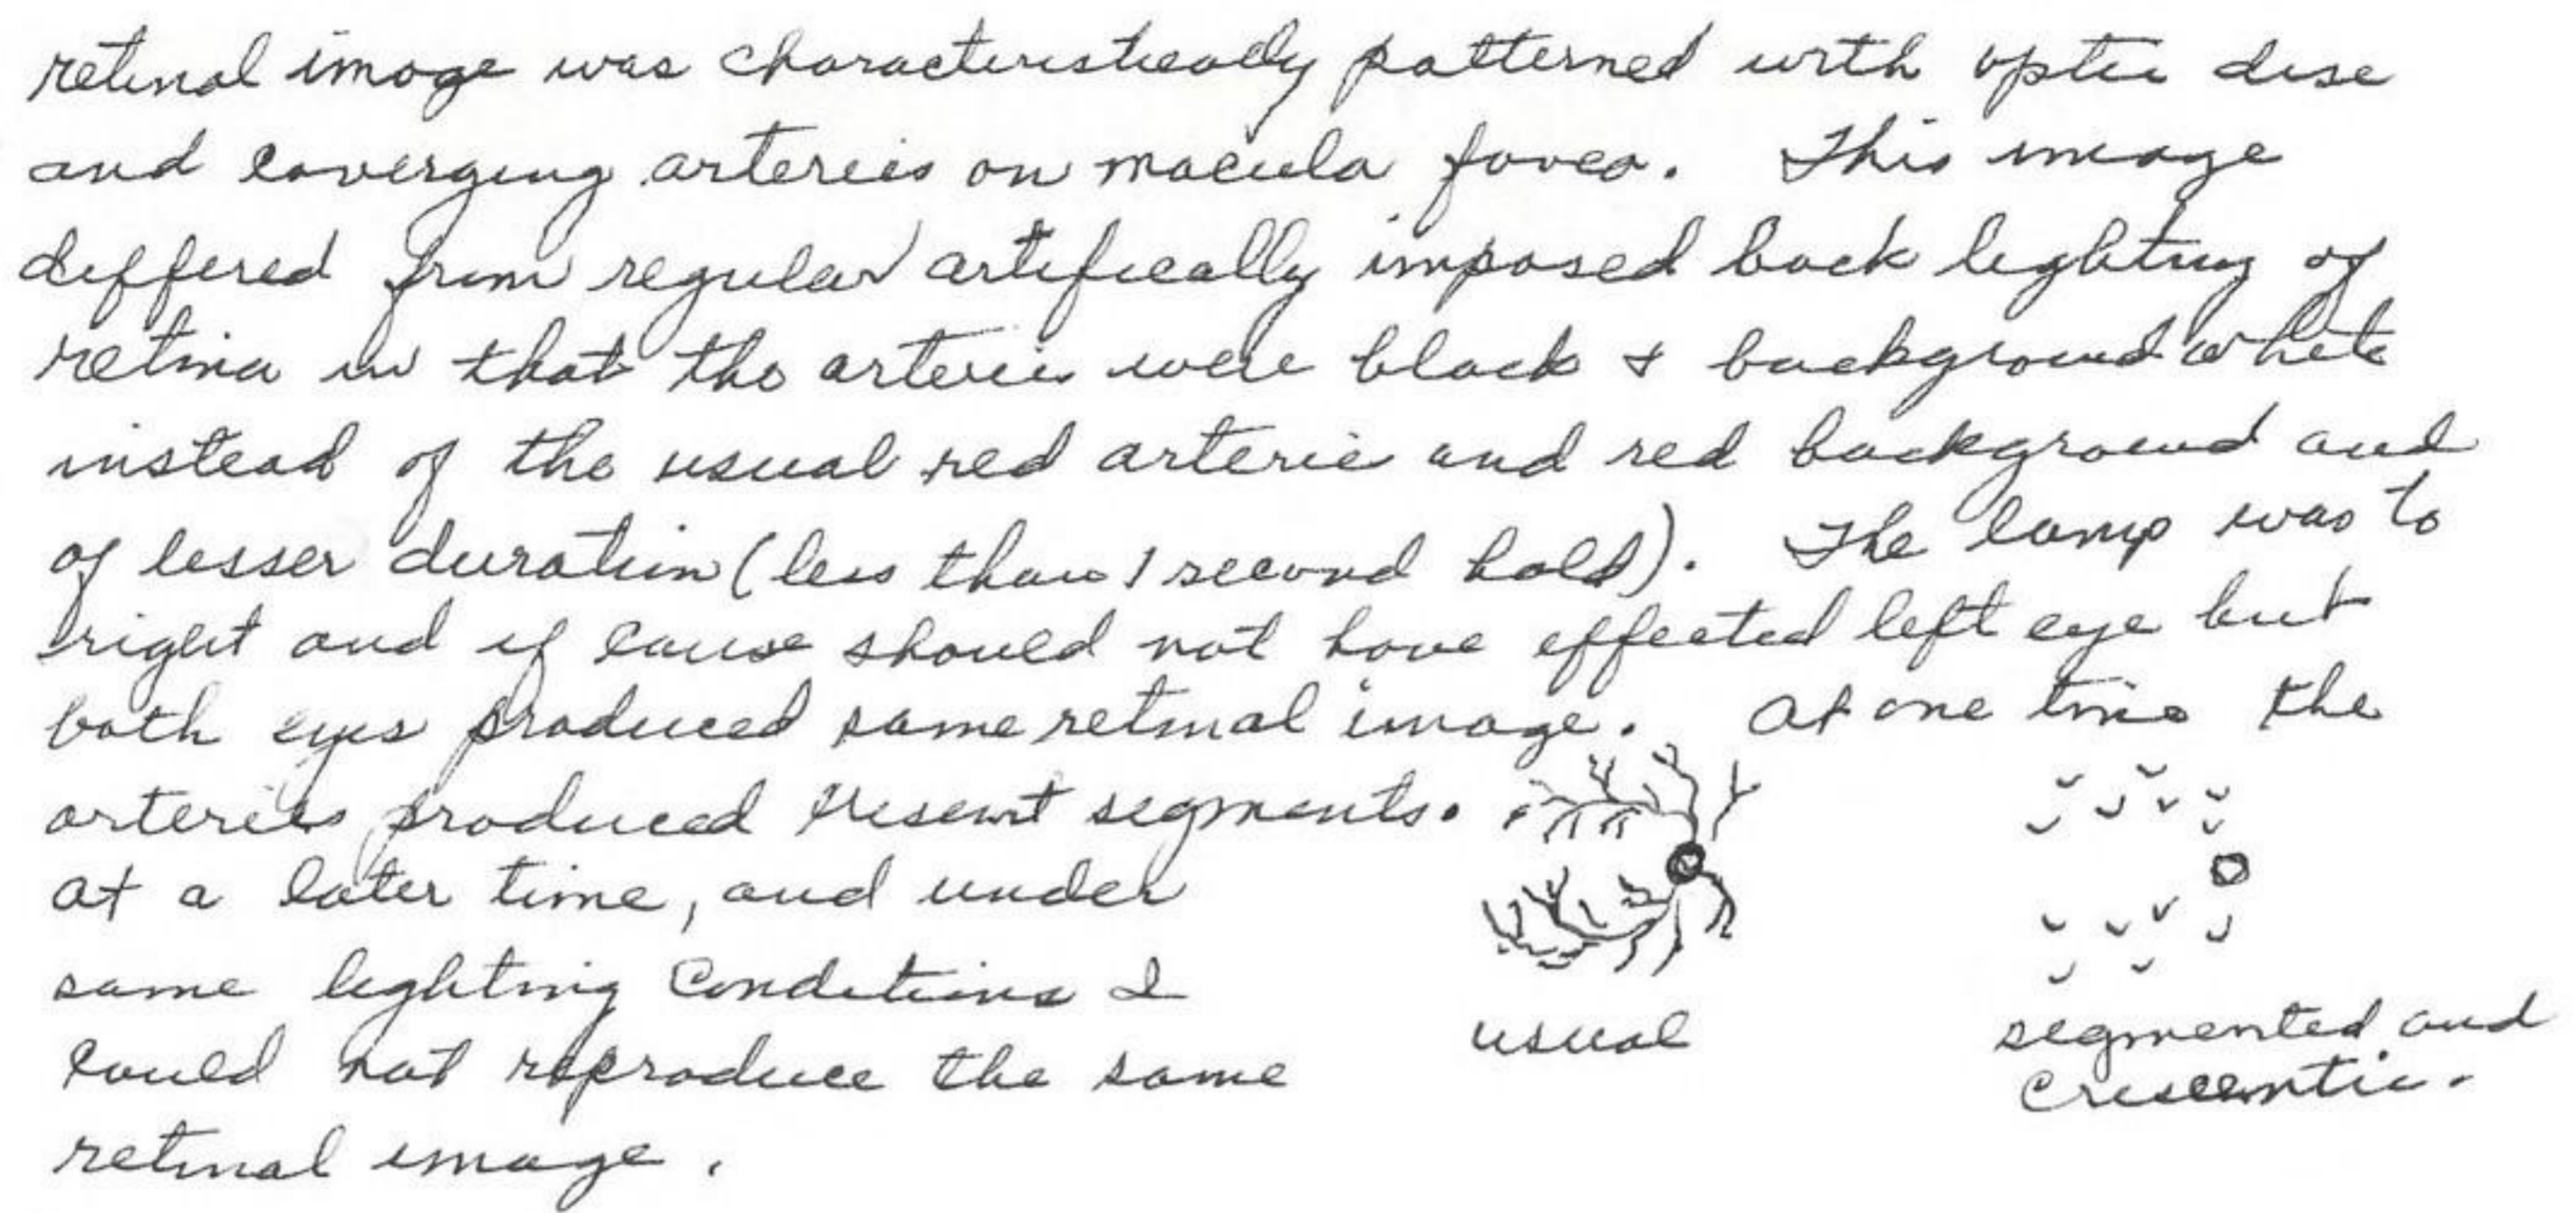 retinal image was characteristically patterned with optic disc
and coverging arteries on macula fovea. This image
differed from regular artifically imposed back lighting of
retina in that the arterie were black & background white
instead of the usual red arterie and red background and
of lesser duration (less than 1 second hold). The lamp was to
right and if cause should not have effected left eye but
both eyes produced same retinal image. At one time the
arteries produced cresent segments.
at a later time, and under
same lighting conditions I
could not reproduce the same
retinal image.
usual
segmented and
crescentic.